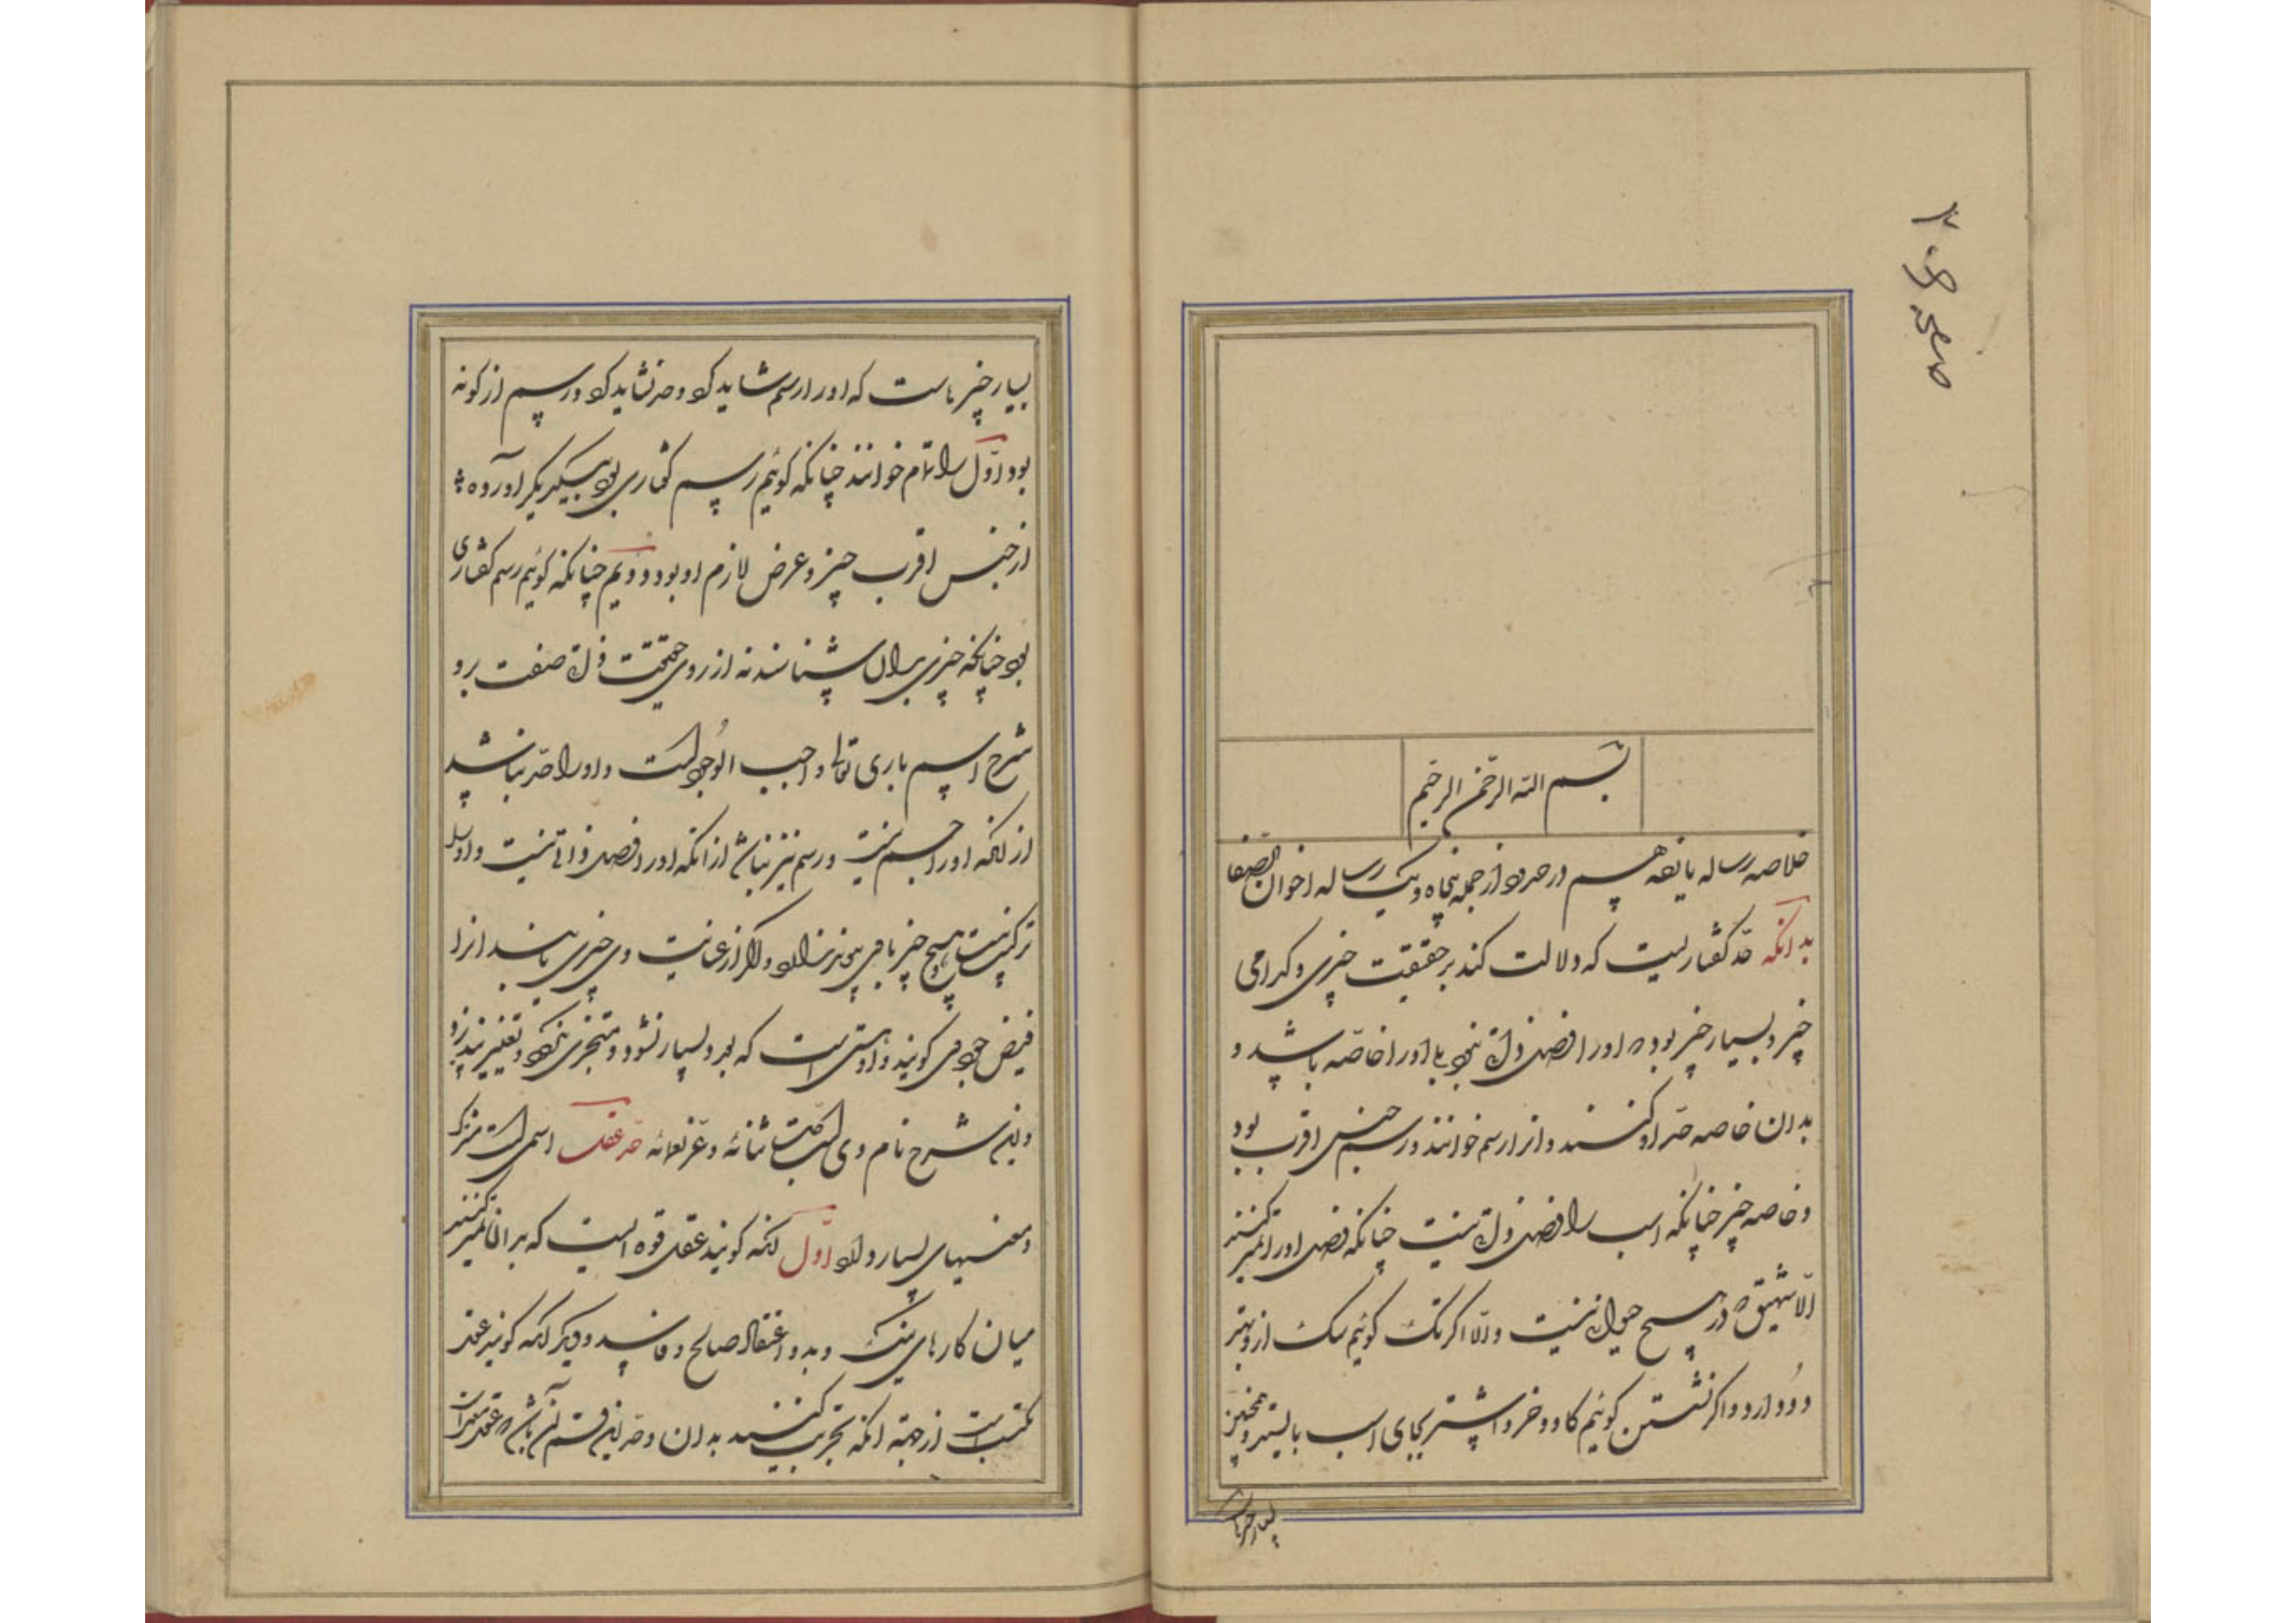 صفحه ۲۰۶
بسم الله الرحمن الرحیم
خلاصه رساله یازدهم در حدود از جمله پنجاه و یک رساله اخوان الصفا
بدانکه حد گفتاریست که دلالت کند بر حقیقت چیزی و کدامی
چیز و بسیار چیز بود که اورا فصل ذاتی نبود یا اورا خاصه باشد و
بدان خاصه حد او کنند و انرا رسم خوانند و رسم جنس اقرب بود
و خاصه چیز چنانکه اسب را فصل ذاتی نیست چنانکه فصل اورا تمیز کنند
الا شهیق که در هیچ حیوان نیست والا اگر تک گوئیم سگ ازو بهتر
دود و اگر نشستن گوئیم گاو و خر و اشتر بجای اسب بایستد و همچنین
بسیار چیزهاست
بسیار چیزهاست که اورا رسم شاید کرد و حد نشاید کرد و رسم از گونه
بود اول را تام خوانند چنانکه گوئیم رسم گفتاری بود بیکدیگر آورده
از جنس اقرب چیز و عرض لازم او بود و دویم چنانکه گوئیم رسم گفتاری
بود چنانکه چیزی بدان شناسند نه از روی حقیقت ذات صفت برو
شرح اسم باری تعالی واجب الوجود است و اورا حد نباشد
از انکه اورا جنس نیست و رسم نیز نباشد از انکه اورا فصل ذاتی نیست و اورا
ترکیب نیست هیچ چیز با چیزی
فیض جود می گویند و او هستی است که بدو بسیار نشود و متجزی نگردد و تغییر نپذیرد
و این شرح نام وی است جلت ثنائه و عز نعمائه حد عقل اسمی است مشترک
و معنیهای بسیار دارد اول انکه گویند عقل قوه ایست که بدان تمیز کنند
میان کارهای نیک و بد و اعتقاد صالح و فاسد و دیگر انکه گویند عقل
مکتسب است از جهة انکه تجربت کنند بدان و حد این قسم آن باشد که عقل